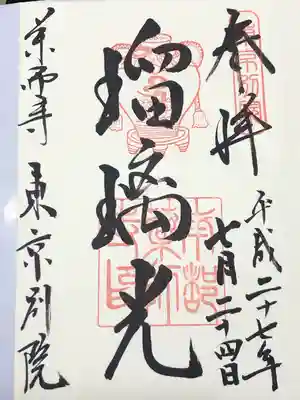 奉拝
平成二十七年
七月二十四日
瑠璃光
薬師寺 東京別院